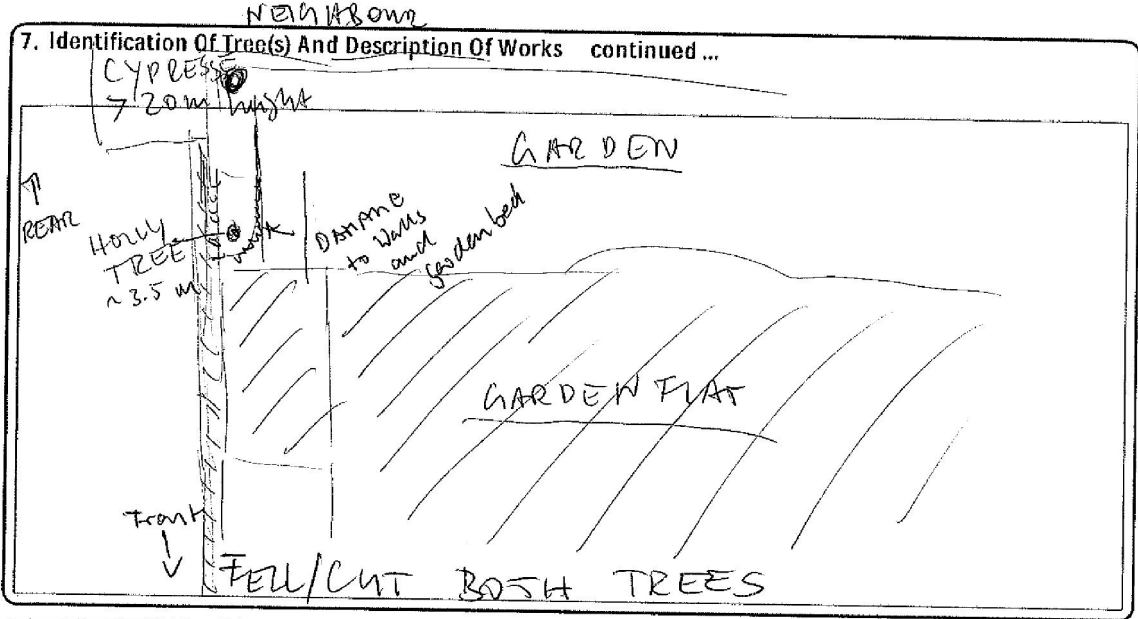 NEIGHBOUR
7. Identification Of Tree(s) And Description Of Works continued ...
CYPRESSE
> 20m height
GARDEN
↑
REAR
HOLLY
TREE
~ 3.5 m
DAMAGE
to Walls
and
garden bed
GARDEN FLAT
Front
↓
FELL/CUT BOTH TREES